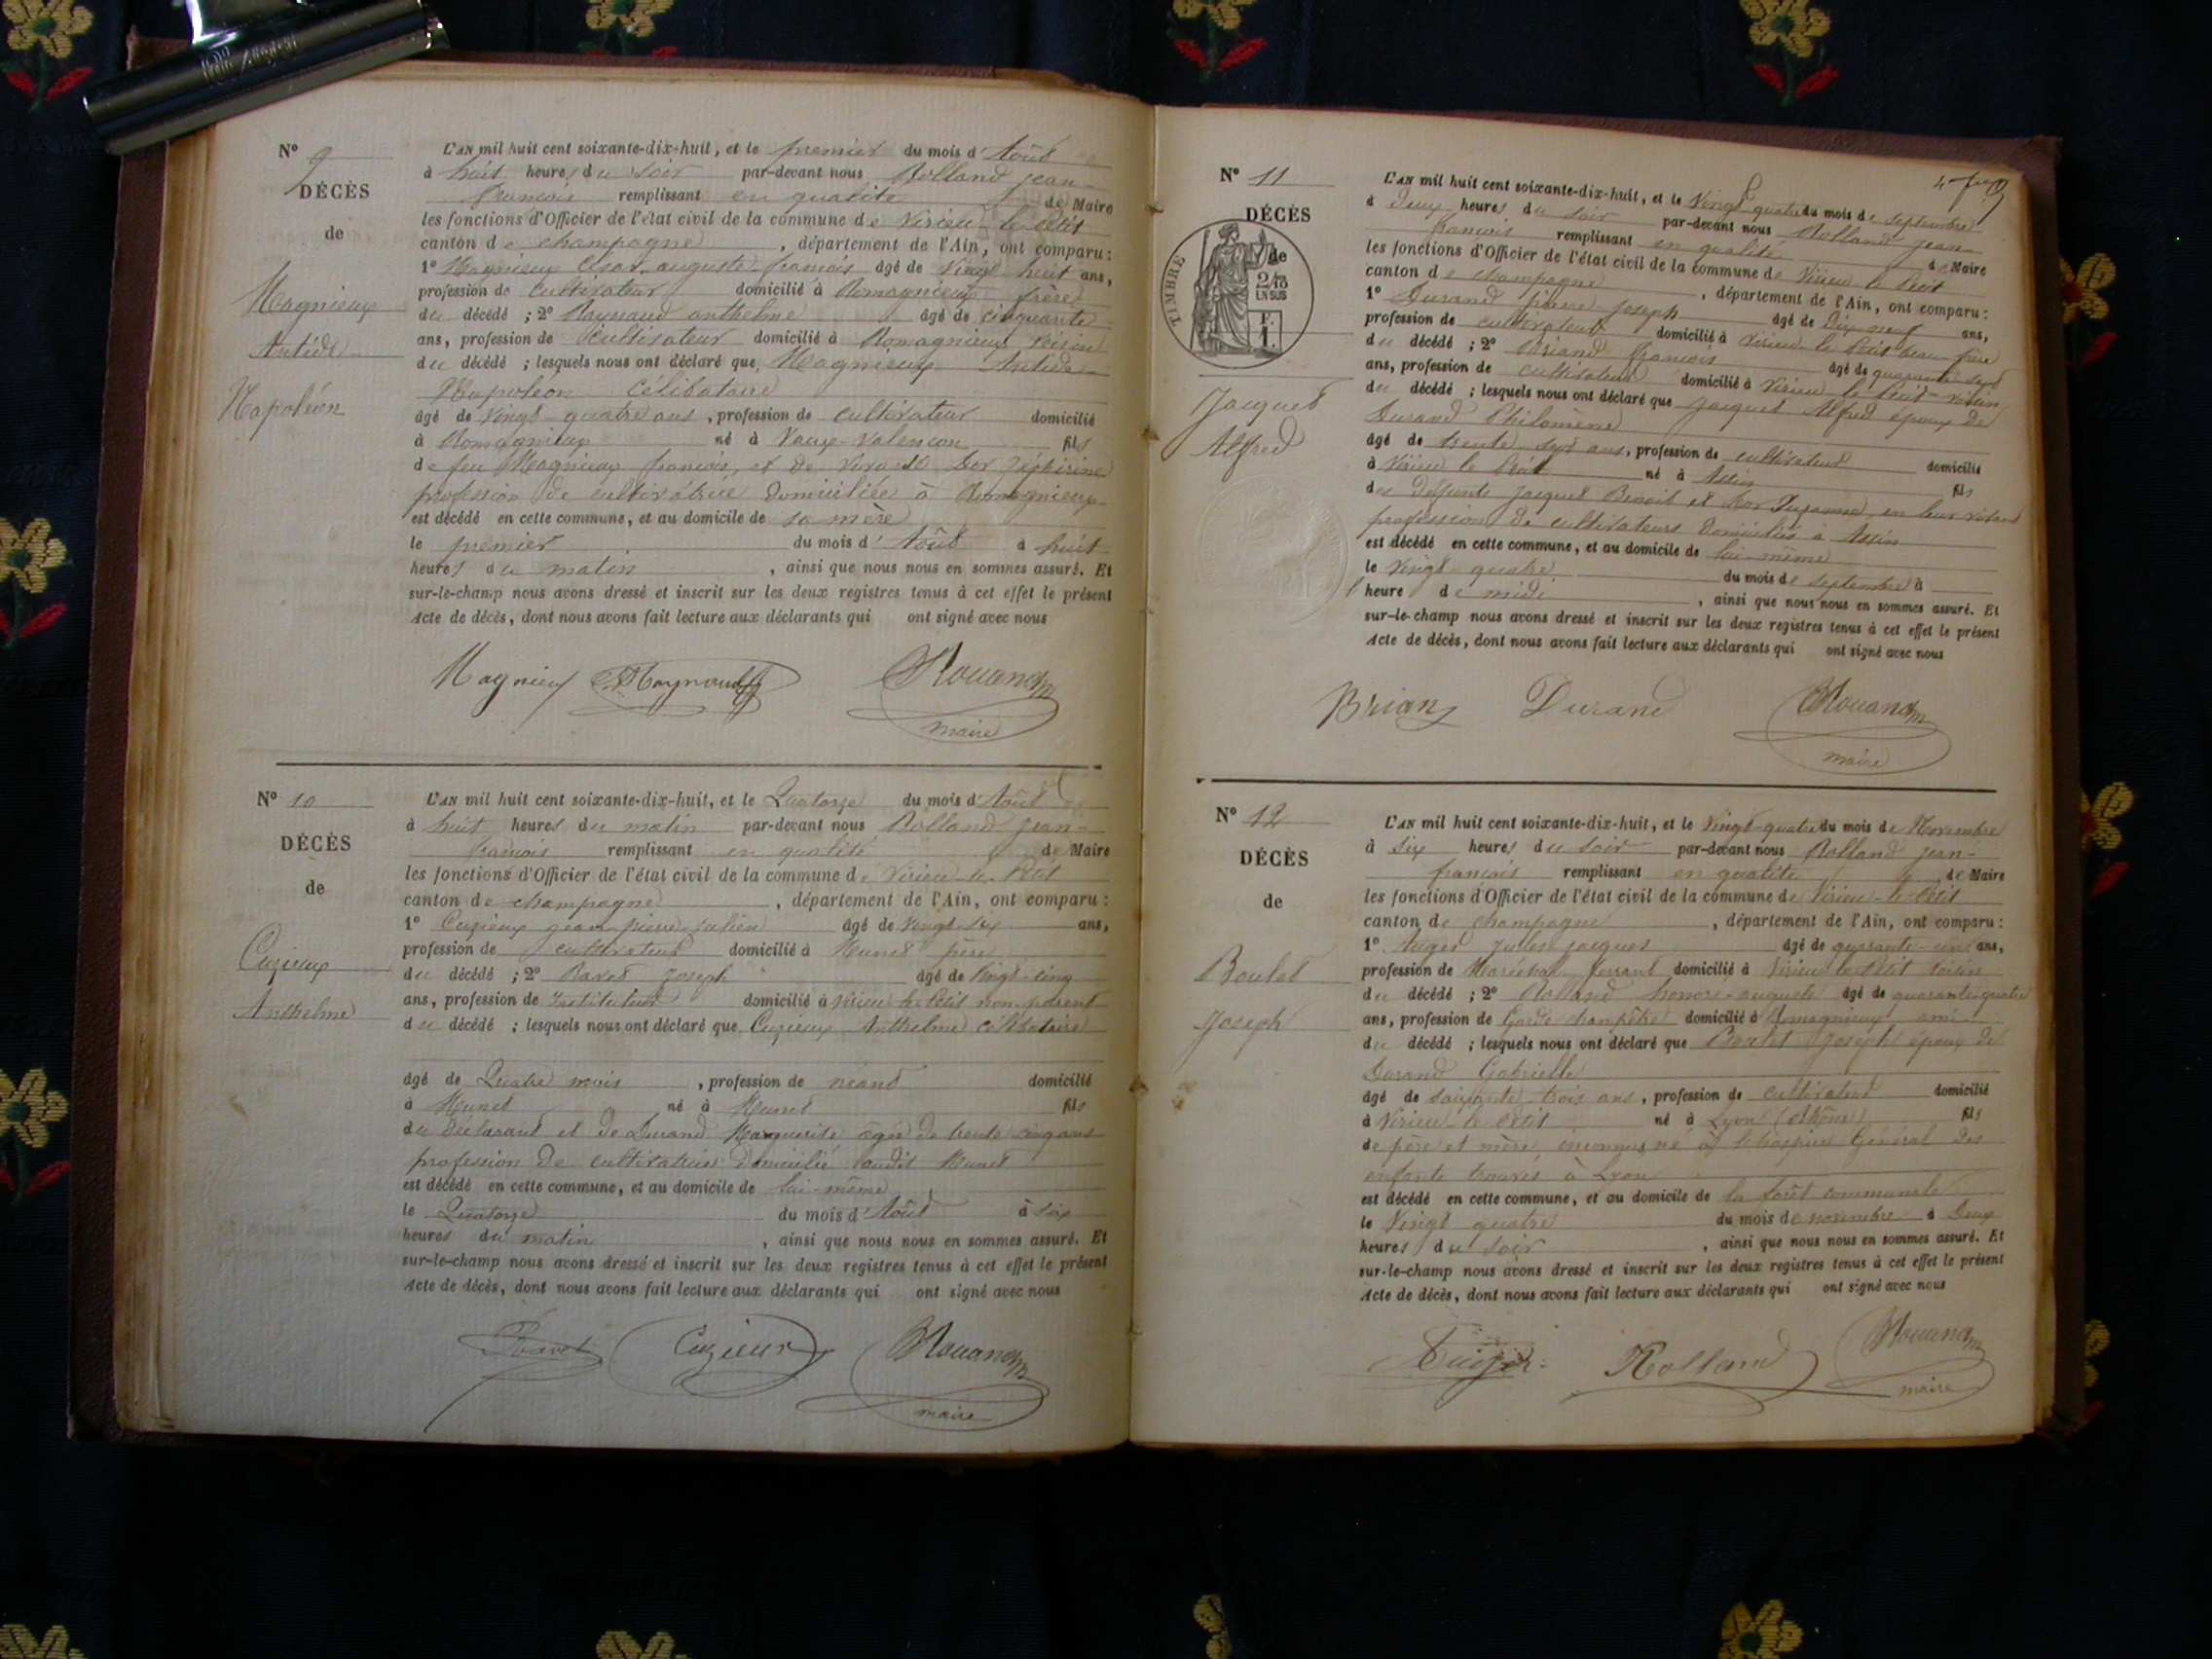 N° 9
DÉCÈS
de
Magnieux
Antide
Napoléon
L'AN mil huit cent soixante-dix-huit, et le premier du mois d'Août
à huit heures du soir par-devant nous Rolland jean-
françois remplissant en qualité de Maire
les fonctions d'Officier de l'état civil de la commune de Virieu-le-Petit
canton de champagne, département de l'Ain, ont comparu :
1° Magnieux César auguste françois âgé de vingt huit ans,
profession de cultivateur domicilié à Romagnieux frère
du décédé ; 2° Raynaud anthelme âgé de cinquante
ans, profession de Cultivateur domicilié à Romagnieux voisin
du décédé ; lesquels nous ont déclaré que Magnieux Antide
Napoléon Célibataire
âgé de vingt-quatre ans, profession de cultivateur domicilié
à Romagnieux né à fils
de feu Magnieux françois, et de
profession de cultivatrice domiciliée à Romagnieux
est décédé en cette commune, et au domicile de sa mère
le premier du mois d'Août à huit
heures du matin, ainsi que nous nous en sommes assuré. Et
sur-le-champ nous avons dressé et inscrit sur les deux registres tenus à cet effet le présent
Acte de décès, dont nous avons fait lecture aux déclarants qui ont signé avec nous
Magnieux Raynaud
maire
N° 10
DÉCÈS
de
Cuzieux
Anthelme
L'AN mil huit cent soixante-dix-huit, et le Quatorze du mois d'Août
à huit heures du matin par-devant nous Rolland jean-
françois remplissant en qualité de Maire
les fonctions d'Officier de l'état civil de la commune de Virieu-le-Petit
canton de champagne, département de l'Ain, ont comparu :
1° Cuzieux jean pierre julien âgé de vingt-six ans,
profession de cultivateur domicilié à Munet père
du décédé ; 2° Ravet Joseph âgé de vingt-cinq
ans, profession de Instituteur domicilié à Virieu-le-Petit non parent
du décédé ; lesquels nous ont déclaré que Cuzieux Anthelme célibataire
âgé de Quatre mois, profession de néant domicilié
à Munet né à Munet fils
du Déclarant et de Durand Marguerite âgée de trente cinq ans
profession de cultivatrice domicilié audit Munet
est décédé en cette commune, et au domicile de lui-même
le Quatorze du mois d'Août à six
heures du matin, ainsi que nous nous en sommes assuré. Et
sur-le-champ nous avons dressé et inscrit sur les deux registres tenus à cet effet le présent
Acte de décès, dont nous avons fait lecture aux déclarants qui ont signé avec nous
Ravet Cuzieux
maire
N° 11
DÉCÈS
de
TIMBRE
EN SUS
F.
1.
Jacquet
Alfred
L'AN mil huit cent soixante-dix-huit, et le Vingt quatre du mois de septembre
à Deux heures du soir par-devant nous Rolland jean-
françois remplissant en qualité de Maire
les fonctions d'Officier de l'état civil de la commune de Virieu le Petit
canton de champagne, département de l'Ain, ont comparu :
1° Durand pierre joseph âgé de Dix-neuf ans,
profession de cultivateur domicilié à Virieu-le-Petit beau-frère
du décédé ; 2° Briand françois âgé de quarante sept
ans, profession de cultivateur domicilié à Virieu le Petit voisin
du décédé ; lesquels nous ont déclaré que Jacquet Alfred époux de
Durand Philomène
âgé de trente sept ans, profession de cultivateur domicilié
à Virieu le Petit né à Assin fils
des Défunts Jacquet Benoit et Suzanne, en leur vivant
profession de cultivateurs domiciliés à Assin
est décédé en cette commune, et au domicile de lui-même
le Vingt quatre du mois de septembre à
heure de midi, ainsi que nous nous en sommes assuré. Et
sur-le-champ nous avons dressé et inscrit sur les deux registres tenus à cet effet le présent
Acte de décès, dont nous avons fait lecture aux déclarants qui ont signé avec nous
Brian Durand
maire
N° 12
DÉCÈS
de
Boulet
Joseph
L'AN mil huit cent soixante-dix-huit, et le Vingt-quatre du mois de Novembre
à Six heures du soir par-devant nous Rolland jean-
françois remplissant en qualité de Maire
les fonctions d'Officier de l'état civil de la commune de Virieu-le-Petit
canton de champagne, département de l'Ain, ont comparu :
1° Auger Jules jacques âgé de quarante-un ans,
profession de Maréchal ferrant domicilié à Virieu-le-Petit voisin
du décédé ; 2° Rolland honoré-auguste âgé de quarante-quatre
ans, profession de Garde-champêtre domicilié à Romagnieux ami
du décédé ; lesquels nous ont déclaré que Boulet Joseph époux de
Durand Gabrielle
âgé de soixante-trois ans, profession de cultivateur domicilié
à Virieu-le-Petit né à Lyon (Rhône) fils
de père et mère inconnus né à l'hospice Général des
enfants trouvés à Lyon
est décédé en cette commune, et au domicile de la forêt communale
le Vingt quatre du mois de novembre à Deux
heures du soir, ainsi que nous nous en sommes assuré. Et
sur-le-champ nous avons dressé et inscrit sur les deux registres tenus à cet effet le présent
Acte de décès, dont nous avons fait lecture aux déclarants qui ont signé avec nous
Rolland
maire